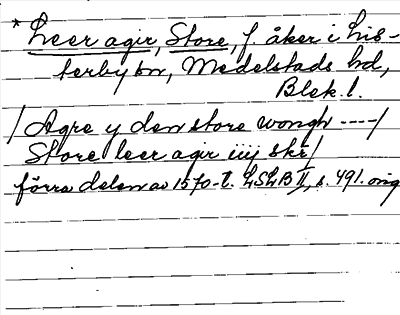 * Leer agir, Store, f. åker i Lis-
terby sn, Medelstads hd,
Blek. l.
/ Agre y den store wongh ----/
Store leer agir iiij skr/
förra delen av 1570-t. LSLB II, s. 491. orig